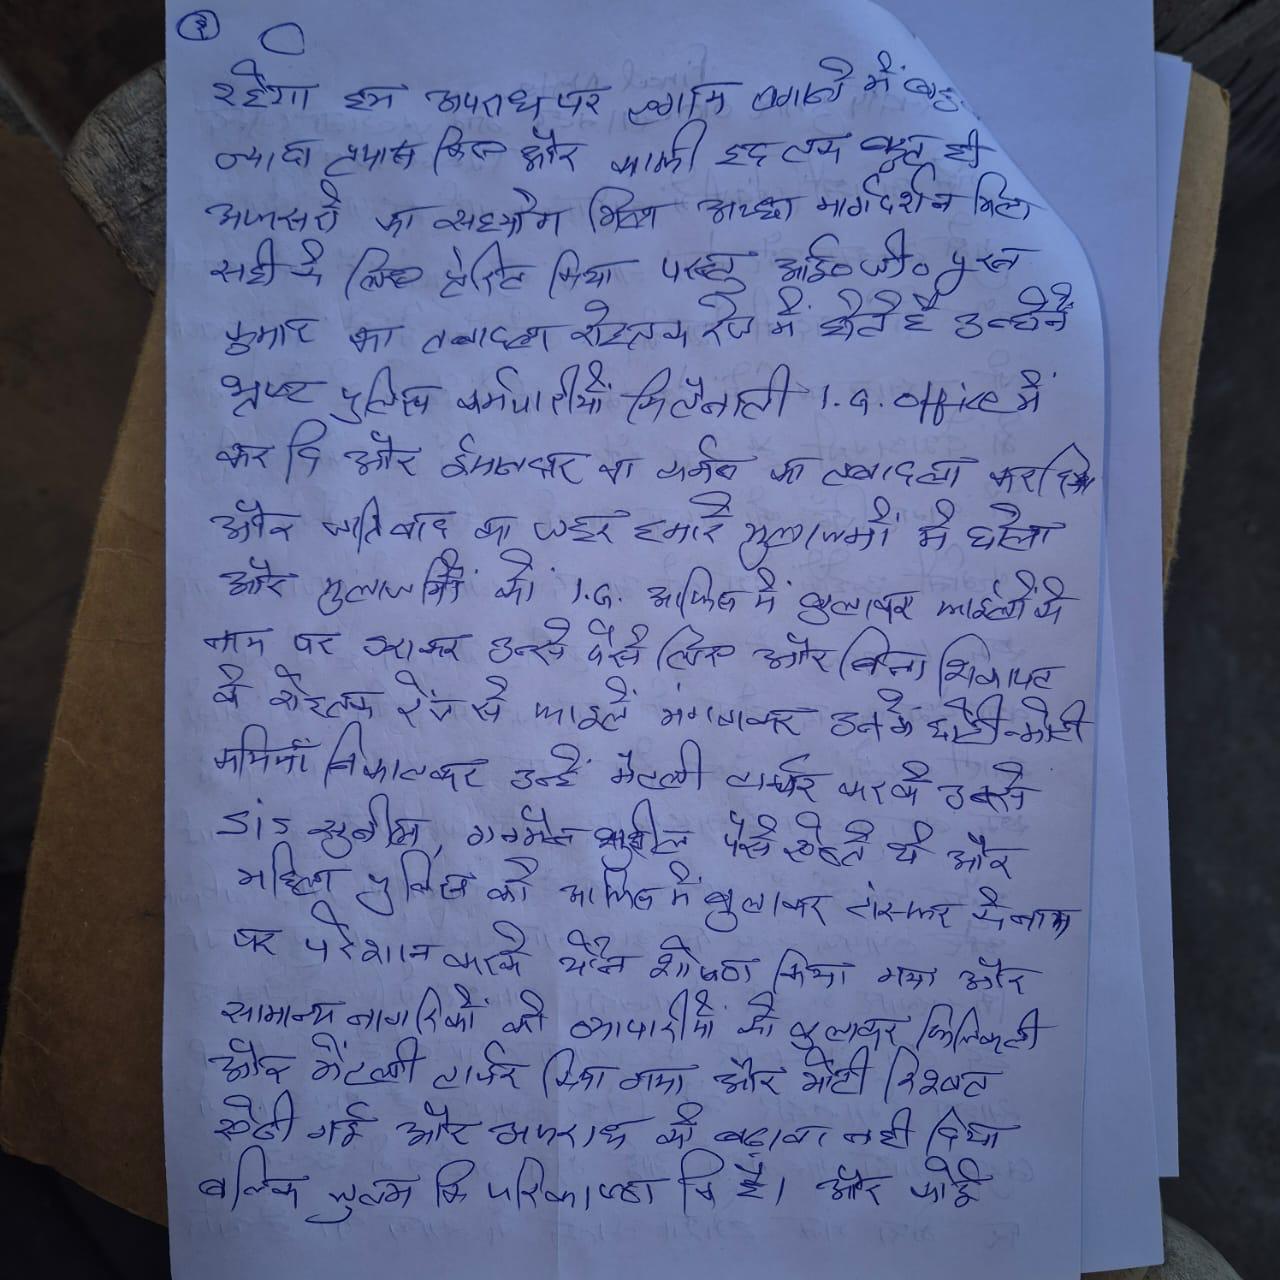 रहेगा हम अपराध पर लगाम लगाने में बहु
ज्यादा प्रयास किए और काफी हद तक बहुत ही
अफसरों का सहयोग मिला अच्छा मार्गदर्शन मिला
सही के लिए प्रेरित किया परन्तु आई॰ जी॰ पुरन
कुमार का तबादला रोहतक रेंज में होते है उन्होने
भ्रष्ट पुलिस कर्मचारीयों कि तैनाती I.G. office में
कर दि और ईमानदार का तबादला कर दिया
और जातिवाद का जहर हमारे मुलाजमों में घोला
और मुलाजमों को I.G. आफिस में बुलाकर फाईलों के
नाम पर डराकर उनसे पैसे लिए और बिना शिकायत
के रोहतक रेंज से फाइलें मंगवाकर उनमें छोटी मोटी
कमियां निकालकर उन्हें मेंटली टार्चर करके उनसे
सुनील, गनमैन सुशील पैसे ऐंठते थे और
महिला पुलिस को आफिस में बुलाकर ट्रांसफर के नाम
पर परेशान करके यौन शोषण किया गया और
सामान्य नागरिकों को व्यापारीयों को बुलाकर फिजिकली
और मेंटली टार्चर किया गया और मोटी रिश्वत
ऐंठी गई और अपराध को बढावा नही दिया
बल्कि जुल्म कि परिकाष्ठा कि है। और कोई